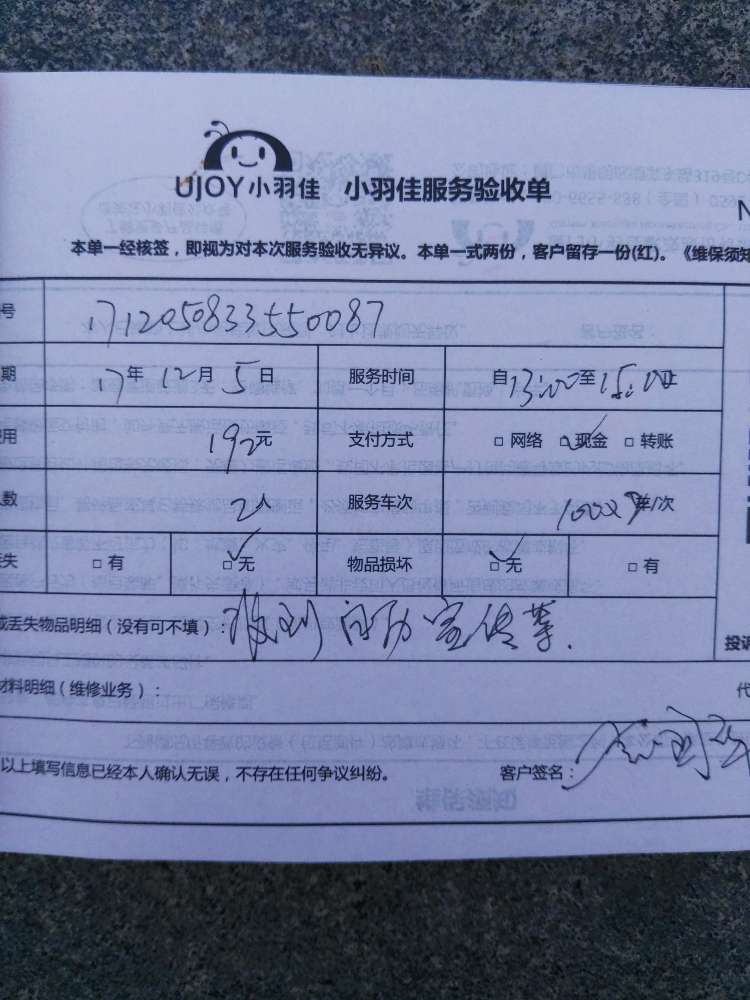 UJOY小羽佳 小羽佳服务验收单
N
本单一经核签，即视为对本次服务验收无异议。本单一式两份，客户留存一份(红)。《维保须知
号 1712050833550087
期 7年 12月 5日 服务时间 自13:00至15:00止
费用 192元 支付方式 □ 网络 ☑ 现金 □ 转账
人数 2人 服务车次 车/次
丢失 □ 有 ☑ 无 物品损坏 ☑ 无 □ 有
或丢失物品明细（没有可不填）：收到 宣传单.
投诉
材料明细（维修业务）：
代
以上填写信息已经本人确认无误，不存在任何争议纠纷。 客户签名：